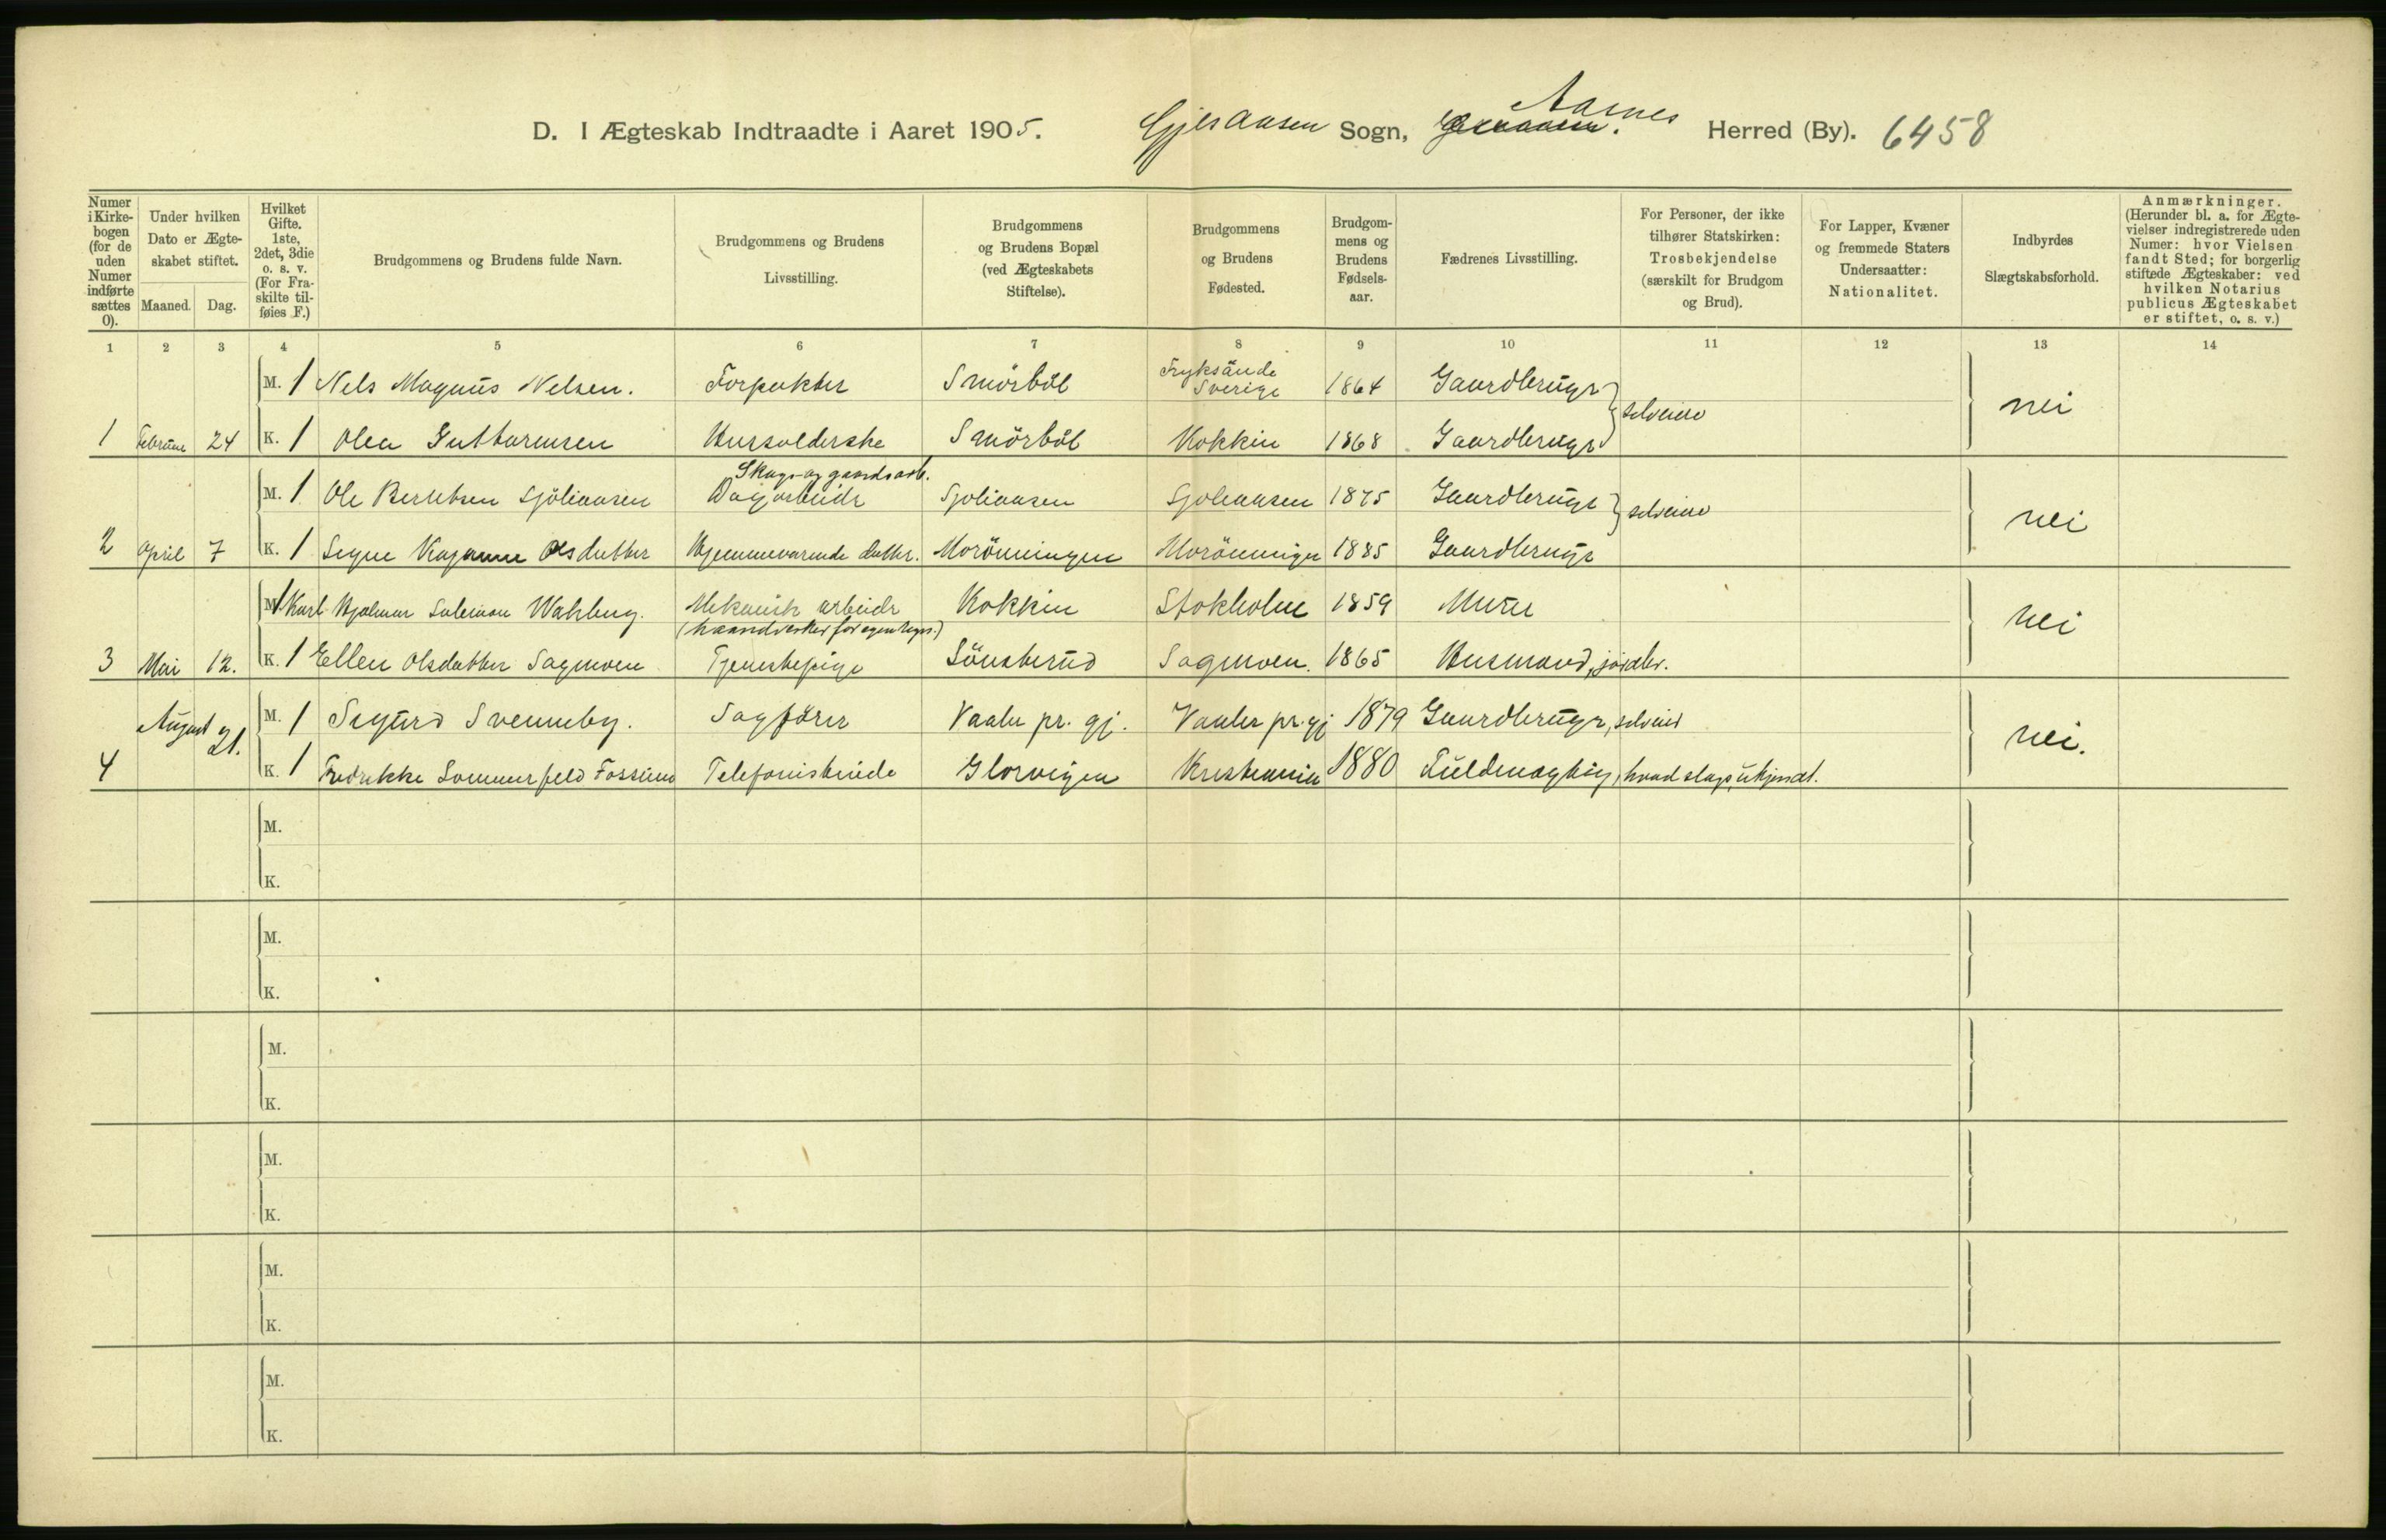 D. I Ægteskab Indtraadte i Aaret 1905. Gjesaasen Sogn, Aasnes Herred (By). 6458
Numer i Kirkebogen (for de uden Numer indførte sættes 0).
Under hvilken Dato er Ægteskabet stiftet.
Maaned. Dag.
Hvilket Gifte. 1ste, 2det, 3die o. s. v. (For Fraskilte tilføies F.)
Brudgommens og Brudens fulde Navn.
Brudgommens og Brudens Livsstilling.
Brudgommens og Brudens Bopæl (ved Ægteskabets Stiftelse).
Brudgommens og Brudens Fødested.
Brudgommens og Brudens Fødselsaar.
Fædrenes Livsstilling.
For Personer, der ikke tilhører Statskirken: Trosbekjendelse (særskilt for Brudgom og Brud).
For Lapper, Kvæner og fremmede Staters Undersaatter: Nationalitet.
Indbyrdes Slægtskabsforhold.
Anmærkninger. (Herunder bl. a. for Ægtevielser indregistrerede uden Numer: hvor Vielsen fandt Sted; for borgerlig stiftede Ægteskaber: ved hvilken Notarius publicus Ægteskabet er stiftet, o. s. v.)
1 2 3 4 5 6 7 8 9 10 11 12 13 14
M. 1 Nels Magnus Nelsen. Forpakter Smörböl Fryksände Sverige 1864 Gaardbruger selveiere nei
1 Februar 24 K. 1 Olea Guttormsen Husholderske Smörböl Kokkin 1868 Gaardbruger
Skogs- og gaardsarb.
M. 1 Ole Berntsen Sjöliaasen Dagarbeider Sjöliaasen Sjöliaasen 1875 Gaardbruger selveiere nei
2 April 7 K. 1 Signe Kajanne Olsdatter Hjemmeværende datter. Morönningen Morönningen 1885 Gaardbruger
M. 1 Karl Hjalmar Salomon Wahlberg. Mekanisk arbeider Kokkin Stokholm 1859 Murer nei
(haandverker for egen regn.)
3 Mai 12. K. 1 Ellen Olsdatter Sagmoen Tjenestepige Sönsterud Sagmoen. 1865 Husmand, jordbr.
August 21. M. 1 Sigurd Svenneby. Sagförer Vaaler pr. gj. Vaaler pr. gj 1879 Gaardbruger, selveier nei.
4 K. 1 Fredrikke Sommerfeld Fossum Telefonistinde Glorvigen Kristiania 1880 Fuldmægtig, hvad slags, ukjendt.
M.
K.
M.
K.
M.
K.
M.
K.
M.
K.
M.
K.